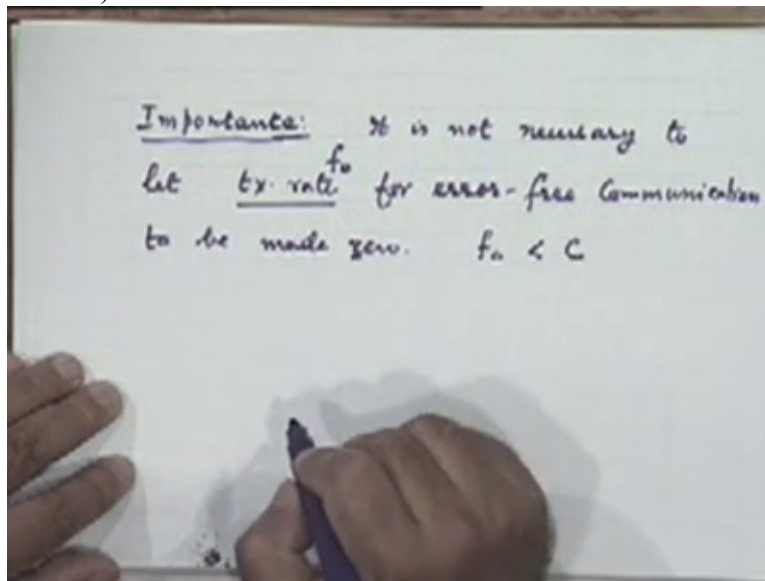 Importance: It is not necessary to
let tx. rate f₀ for error-free Communication
to be made zero. f₀ < C